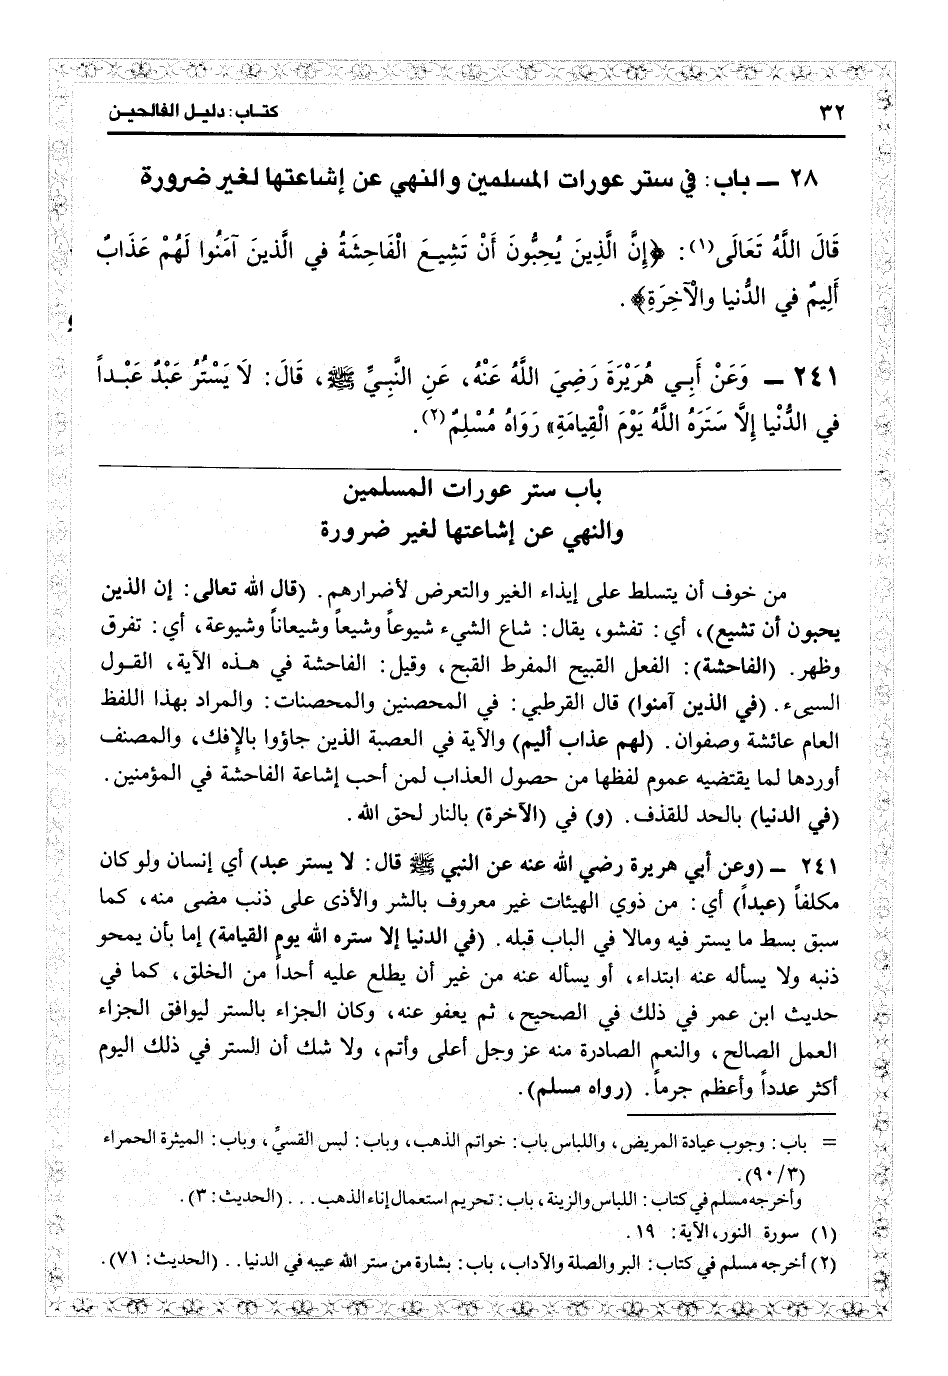 ٣٢
كتاب: دليل الفالحين
٢٨ ـ باب: في ستر عورات المسلمين والنهي عن إشاعتها لغير ضرورة
قَالَ اللَّهُ تَعَالَى(١): ﴿إِنَّ الَّذِينَ يُحِبُّونَ أَنْ تَشِيعَ الْفَاحِشَةُ في الَّذينَ آمَنُوا لَهُمْ عَذَابٌ
أَلِيمٌ في الدُّنيا والْآخِرَةِ﴾.
٢٤١ ـ وَعَنْ أَبـي هُرَيْرَةَ رَضِيَ اللَّهُ عَنْهُ، عَنِ النَّبِـيِّ ﷺ، قَالَ: لَا يَسْتُرُ عَبْدٌ عَبْـداً
في الدُّنْيا إلَّا سَتَرَهُ اللَّهُ يَوْمَ الْقِيامَةِ» رَوَاهُ مُسْلِمٌ(٢).
باب ستر عورات المسلمين
والنهي عن إشاعتها لغير ضرورة
من خوف أن يتسلط على إيذاء الغير والتعرض لأضرارهم. (قال الله تعالى: إن الذين
يحبون أن تشيع)، أي: تفشو، يقال: شاع الشيء شيوعاً وشيعاً وشيعاناً وشيوعة، أي: تفرق
وظهر. (الفاحشة): الفعل القبيح المفرط القبح، وقيل: الفاحشة في هـذه الآية، القـول
السيىء. (في الذين آمنوا) قال القرطبي: في المحصنين والمحصنات: والمراد بهذا اللفظ
العام عائشة وصفوان. (لهم عذاب أليم) والآية في العصبة الذين جاؤوا بالإفك، والمصنف
أوردها لما يقتضيه عموم لفظها من حصول العذاب لمن أحب إشاعة الفاحشة في المؤمنين.
(في الدنيا) بالحد للقذف. (و) في (الآخرة) بالنار لحق الله.
٢٤١ ـ (وعن أبي هريرة رضي الله عنه عن النبي ﷺ قال: لا يستر عبد) أي إنسان ولو كان
مكلفاً (عبداً) أي: من ذوي الهيئات غير معروف بالشر والأذى على ذنب مضى منه، كما
سبق بسط ما يستر فيه ومالا في الباب قبله. (في الدنيا إلا ستره الله يوم القيامة) إما بأن يمحو
ذنبه ولا يسأله عنه ابتداء، أو يسأله عنه من غير أن يطلع عليه أحداً من الخلق، كما في
حديث ابن عمر في ذلك في الصحيح، ثم يعفو عنه، وكان الجزاء بالستر ليوافق الجزاء
العمل الصالح، والنعم الصادرة منه عز وجل أعلى وأتم، ولا شك أن الستر في ذلك اليوم
أكثر عدداً وأعظم جرماً. (رواه مسلم).
= باب: وجوب عيادة المريض، واللباس باب: خواتم الذهب، وباب: لبس القسيِّ، وباب: الميثرة الحمراء
(٩٠/٣).
وأخرجه مسلم في كتاب: اللباس والزينة، باب: تحريم استعمال إناء الذهب... (الحديث: ٣).
(١) سورة النور، الآية: ١٩.
(٢) أخرجه مسلم في كتاب: البر والصلة والآداب، باب: بشارة من ستر الله عيبه في الدنيا.. (الحديث: ٧١).